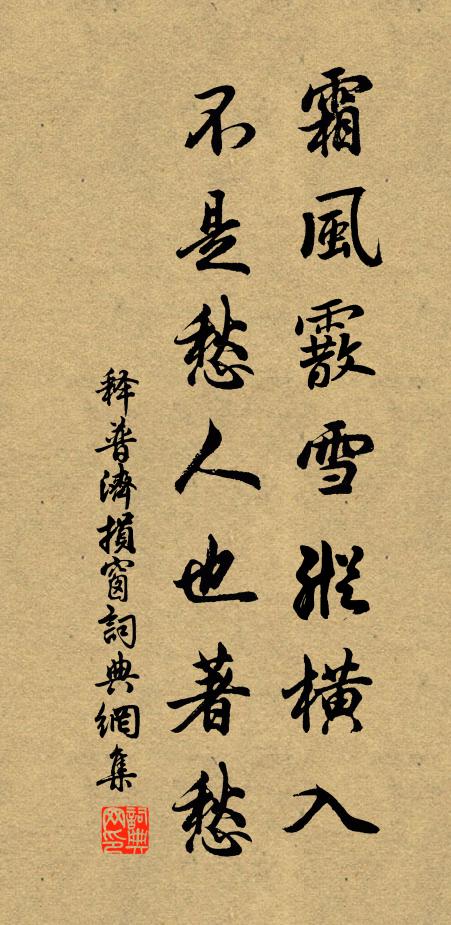 霜風霰雪縱橫入
不是愁人也著愁
释普濟損窗詞典網集
詞典网印